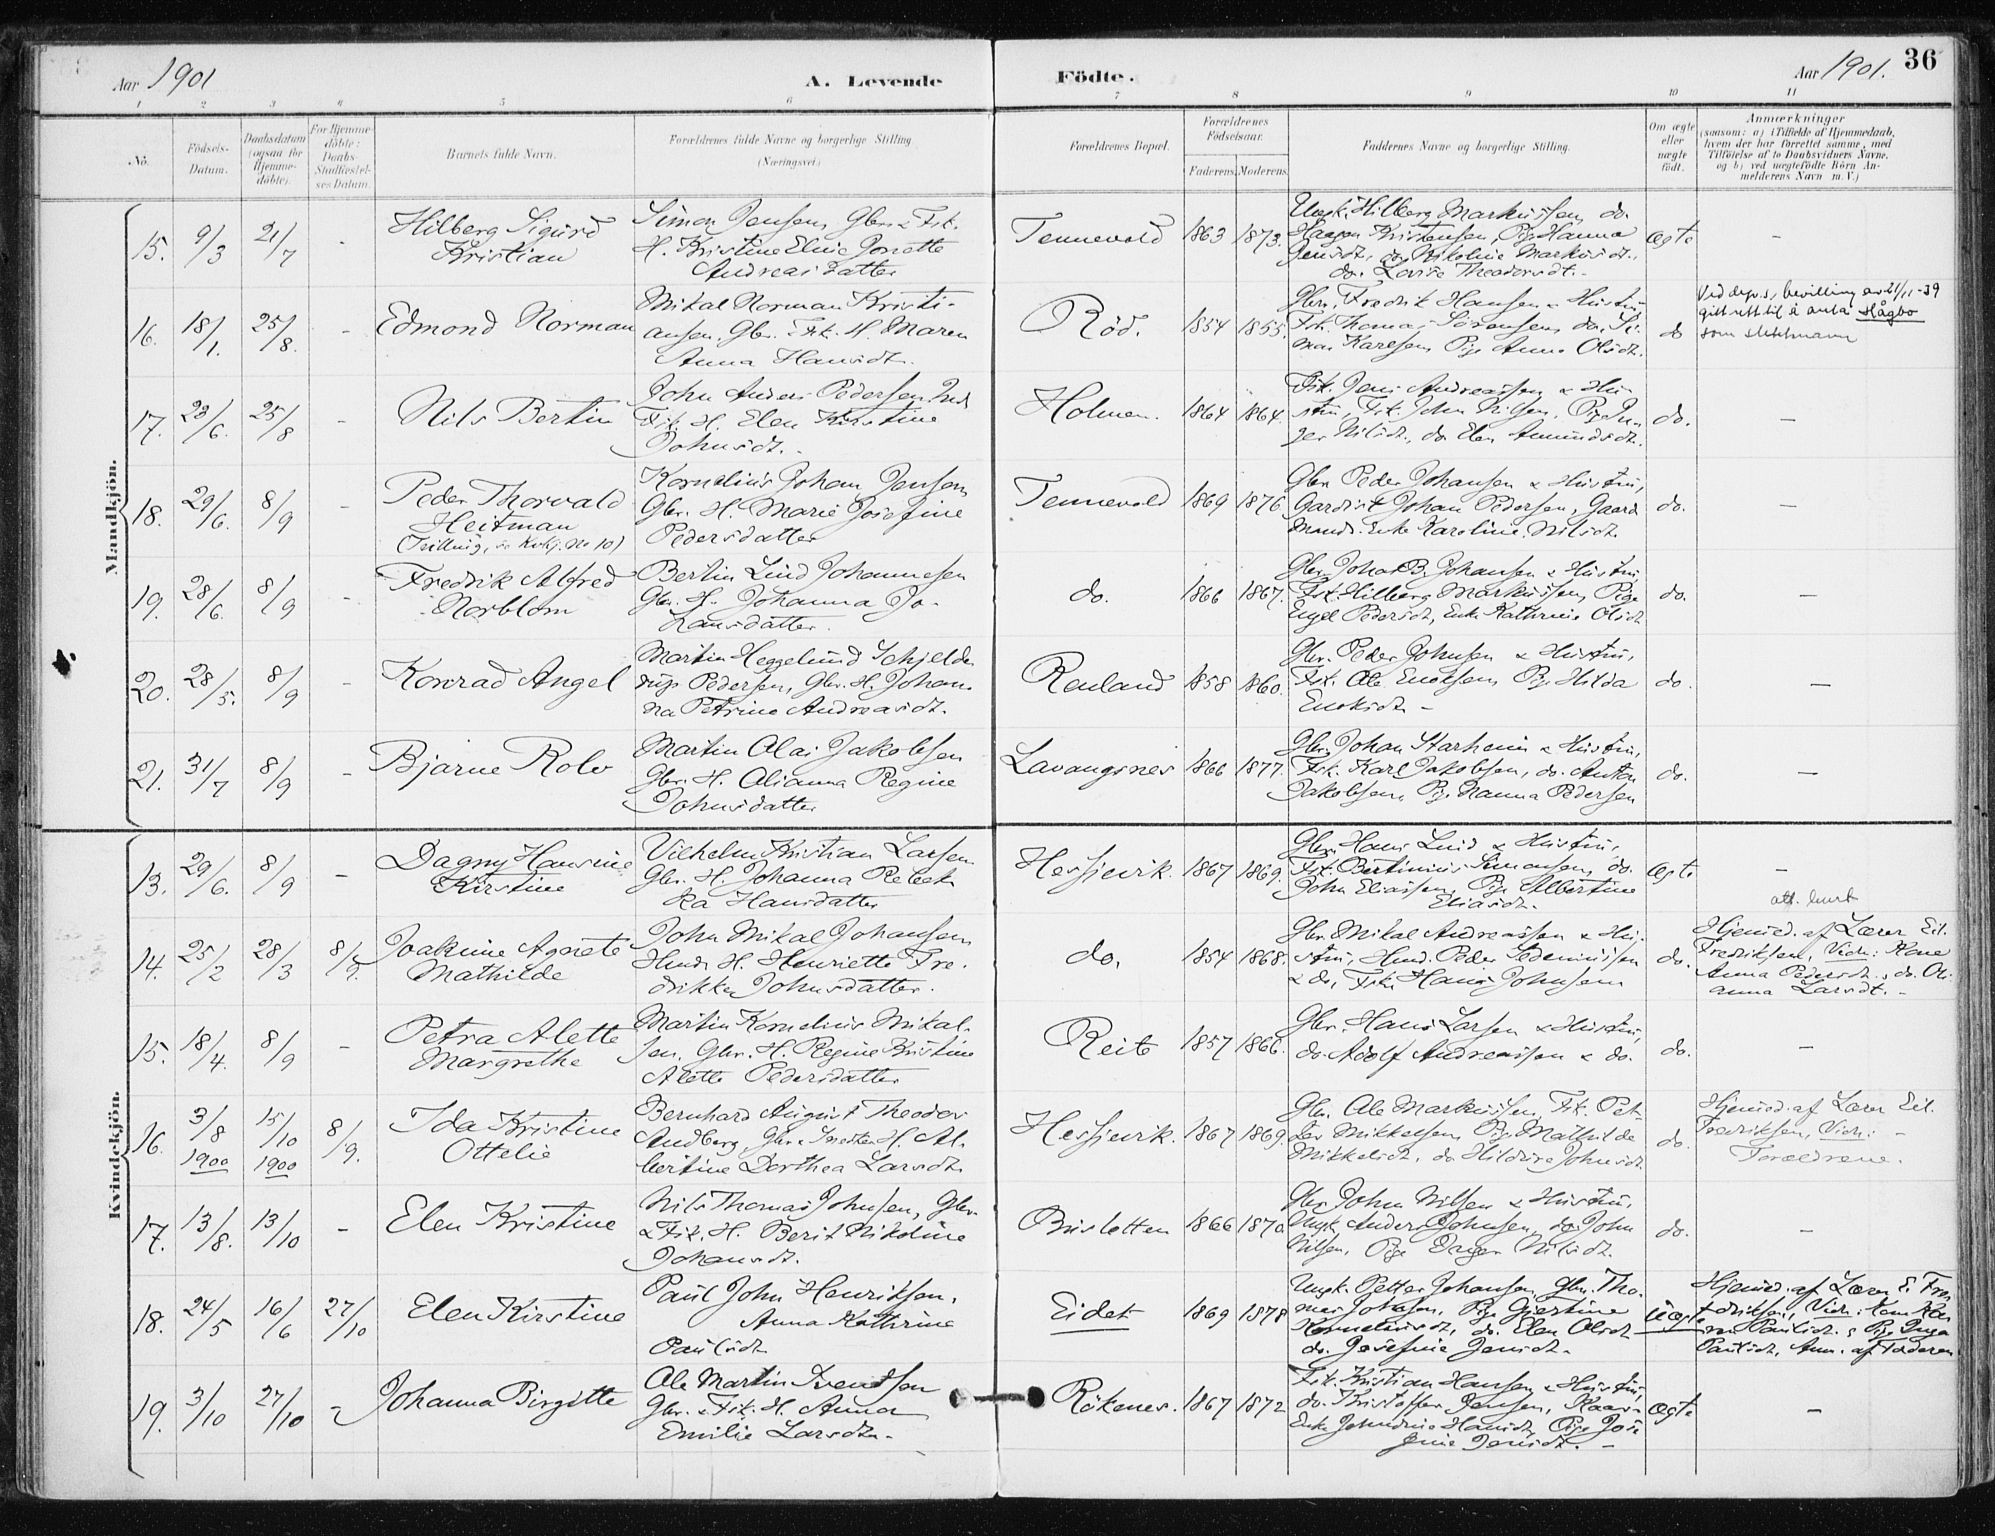 Aar 1901
A. Levende
Födte.
Aar 1901.
36
1 2 3 4 5 6 7 8 9 10 11
No.
Födsels-
Datum.
Daabsdatum
(ogsaa for
Hjemme-
döbte).
For Hjemme-
döbte:
Daabs-
Stadfæstel-
ses Datum.
Barnets fulde Navn.
Forældrenes fulde Navne og borgerlige Stilling
(Næringsvei)
Forældrenes Bopæl.
Forældrenes
Födselsaar.
Faderens. Moderens.
Faddernes Navne og borgerlige Stilling.
Om ægte
eller
uægte
födt.
Anmærkninger
(saasom: a) i Tilfælde af Hjemmedaab,
hvem der har forrettet samme, med
Tilföielse af to Daabsvidners Navne,
og b) ved uægtefödte Börn An-
melderens Navn m. V.)
Mandkjön.
15. 9/3 21/7 -
Hilberg Sigurd
Kristian
Simon Jensen, Gbr. & Fisk.
H. Kristine Eline Josette
Andreasdatter
Tennevold 1863 1873.
Ungk. Hilberg Markussen, do.
Haagen Kristensen, Pige Hanna
Jensdt., do. Nikoline Markusdt.,
do. Lovise Theodorsdt. -
Ægte -
16. 18/1. 25/8. -
Edmond Norman
Mikal Norman Kristi-
ansen, Gbr. Fisk. H. Maren
Anna Hansdt.
Röd. 1854 1855.
Gbr. Fredrik Hansen & Hustru,
Fisk. Thomas Sörensen, do. Si-
mon Karlsen, Pige Anna Olsdt.
do
Ved dep.s. bevilling av 21/11-39
gitt rett til å anta Hågbo
som slektsnavn
17. 23/6. 25/8 -
Nils Bertin
John Anders Pedersen, Ind.
Fisk. H. Elen Kirstine
Johnsdt.
Holmen. 1864 1864.
Fisk. Jens Andreassen & Hu-
stru, Fisk. John Nilsen, Pige In-
ger Nilsdt., do. Elen Amundsdt.
do. -
18. 29/6. 8/9 -
Peder Thorvald
Heitman
(Tvilling, se Kvkj. No 10)
Kornelius Johan Jensen
Gbr. H. Marie Josefine
Pedersdatter
Tennevold 1869 1876
Gbr. Peder Johansen & Hustru,
Gardist Johan Pedersen, Gaard
mands Enke Karoline Nilsdt.
do. -
19. 28/6. 8/9 -
Fredrik Alfred
Norblom
Bertin Lind Johannesen
Gbr. H. Johanna Jo-
hansdatter.
do. 1866 1867.
Gbr. Johan B. Johansen & Hustru,
Fisk. Hilberg Markussen, Pige
Engel Pedersdt., Enke Kathrine Olsdt.
do. -
20. 28/5. 8/9 -
Konrad Angel
Martin Heggelund Schjelde
rup Pedersen, Gbr. H. Johan-
na Petrine Andreasdt.
Renland 1858 1860.
Gbr. Peder Johnsen & Hustru,
Fisk. Ole Enoksen, Pige Hilda
Enoksdt. -
do. -
21. 31/7 8/9 -
Bjarne Rolv
Martin Olai Jakobsen
Gbr. H. Olianna Regine
Johnsdatter
Lavangsnes 1866 1877.
Gbr. Johan Starheim & Hustru,
Fisk. Karl Jakobsen, do. Anton
Jakobsen, Pige Nanna Pedersen
do. -
Kvindekjön.
13. 29/6. 8/9 -
Dagny Hansine
Kirstine
Vilhelm Kristian Larsen
Gbr. H. Johanna Rebek
ka Hansdatter
Hessjevik. 1867 1869.
Gbr. Hans Lind & Hustru,
Fisk. Bertinius Simonsen, do.
John Eliassen, Pige Albertine
Eliasdt.
Ægte -
14. 25/2 28/3 8/9.
Joakime Agnete
Mathilde
John Mikal Johansen
Husm. H. Henriette Fre-
drikke Johnsdatter.
do. 1854 1868.
Gbr. Mikal Andreassen & Hu-
stru, Husm. Peder Pedersen
& do, Fisk. Hans Johnsen
do.
att. levert
Hjemmed. af Lærer Eil.
Fredriksen, Vidn: Kone
Anna Pedersdt., do. Oli-
anna Larsdt. -
15. 18/4. 8/9 -
Petra Alette
Margrethe
Martin Kornelius Mikal-
sen, Gbr. H. Regine Kristine
Alette Pedersdatter
Reit 1857 1866.
Gbr. Hans Larsen & Hustru,
do. Adolf Andreassen & do.
do. -
16. 3/8 1900 15/10 1900 8/9.
Ida Kristine
Ottelie
Bernhard August Theodor
Andberg, Gbr. & Snedker H. Al-
bertine Dorthea Larsdt.
Hessjevik. 1867 1869.
Gbr. Ole Markussen, Fisk. Pet-
ter Mikkelsen, Pige Mathilde
Mikkelsdt., do. Hildine Johnsdt.
do.
Hjemmed. af Lærer Eil.
Fredriksen, Vidn: -
Forældrene.
17. 13/8. 13/10 -
Elen Kristine
Nils Thomas Johnsen, Gbr.
& Fisk. H. Berit Nikoline
Johansdt.
Brusletten 1866 1870
Gbr. John Nilsen & Hustru,
Ungk. Anders Johnsen, do. John
Nilsen, Pige Inger Nilsdt.
do. -
18. 24/5 16/6 27/10
Elen Kirstine
Paul John Henriksen,
Anna Kathrine
Paulsdt
Eidet 1869 1878
Ungk. Petter Johansen, Gbr. Tho-
mas Johnsen, Pige Gjertine
Korneliusdt., do. Elen Olsdt
do. Josefine Jensdt. -
Uægte
Hjemmed. af Lærer E. Fre
driksen, Vidn:
Paulsdt. & Pige Inga
Paulsdt. Anm. af Faderen
19. 3/10 27/10 -
Johanna Birgitte
Ole Martin Svendsen
Gbr. & Fisk. H. Anna
Emilie Larsdt. -
Rökenes. 1867 1872
Fisk. Kristian Hansen & Hustru,
do. Kristoffer Jensen, Kaar-
Enke Hansdt., Pige Jose
fine Jensdt. -
Ægte -